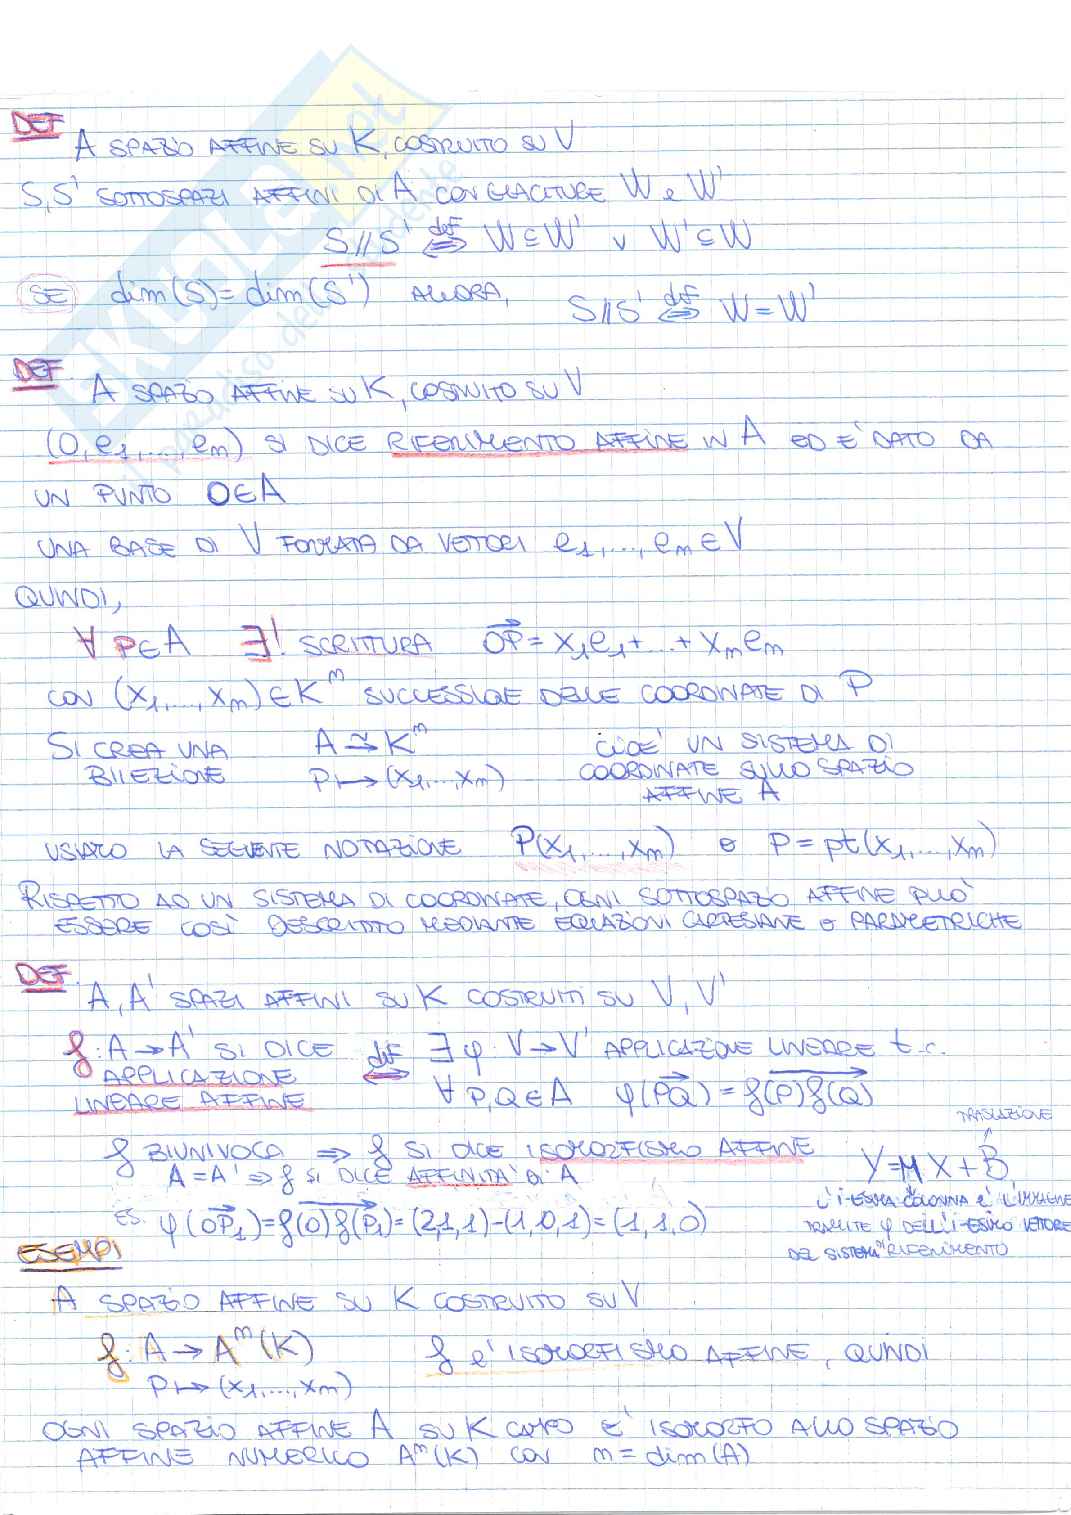 DEF
A SPAZIO AFFINE SU K, COSTRUITO SU V
S, S' SOTTOSPAZI AFFINI DI A CON GIACITURE W e W'
S // S' def⟺ W ⊆ W' ∨ W' ⊆ W
SE dim(S) = dim(S') ALLORA, S // S' def⟺ W = W'
DEF
A SPAZIO AFFINE SU K, COSTRUITO SU V
(O, e₁, ..., eₘ) SI DICE RIFERIMENTO AFFINE IN A ED E' DATO DA
UN PUNTO O ∈ A
UNA BASE DI V FORMATA DA VETTORI e₁, ..., eₘ ∈ V
QUINDI,
∀ P ∈ A ∃! SCRITTURA OP⃗ = x₁e₁ + ... + xₘeₘ
CON (x₁, ..., xₘ) ∈ Kᵐ SUCCESSIONE DELLE COORDINATE DI P
SI CREA UNA A ≃ Kᵐ CIOE' UN SISTEMA DI
BIIEZIONE P ↦ (x₁, ... xₘ) COORDINATE SULLO SPAZIO
AFFINE A
USIAMO LA SEGUENTE NOTAZIONE P(x₁, ..., xₘ) o P = pt(x₁, ..., xₘ)
RISPETTO AD UN SISTEMA DI COORDINATE, OGNI SOTTOSPAZIO AFFINE PUO'
ESSERE COSÌ DESCRITTO MEDIANTE EQUAZIONI CARTESIANE o PARAMETRICHE
DEF
A, A' SPAZI AFFINI SU K COSTRUITI SU V, V'
f: A → A' SI DICE def⟺ ∃ φ: V → V' APPLICAZIONE LINEARE t.c.
APPLICAZIONE
LINEARE AFFINE ∀ P, Q ∈ A φ(PQ⃗) = f(P)f(Q)⃗
TRASLAZIONE
f BIUNIVOCA ⟹ f SI DICE ISOMORFISMO AFFINE
A = A' ⟹ f SI DICE AFFINITA' DI A
Y = M X + B
L'i-ESIMA COLONNA E' L'IMMAGINE
TRAMITE φ DELL'i-ESIMO VETTORE
DEL SISTEMA DI RIFERIMENTO
ES. φ(OP₁⃗) = f(O)f(P₁)⃗ = (2,1,1) - (1,0,1) = (1,1,0)
ESEMPI
A SPAZIO AFFINE SU K COSTRUITO SU V
f: A → Aᵐ(K) f e' ISOMORFISMO AFFINE, QUINDI
P ↦ (x₁, ..., xₘ)
OGNI SPAZIO AFFINE A SU K CAMPO E' ISOMORFO ALLO SPAZIO
AFFINE NUMERICO Aᵐ(K) CON m = dim(A)